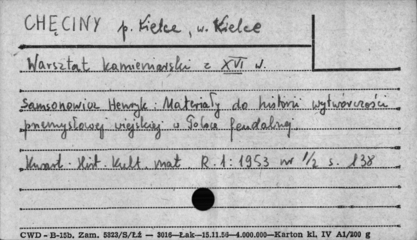 CHĘCINY p. Kielce, w. Kielce
Warsztat kamieniarski z XVI w.
Samsonowicz Henryk: Materiały do historii wytwórczości
przemysłowej wiejskiej w Polsce feudalnej.
Kwart. Hist. Kult. mat. R. 1: 1953 nr 1/2 s. 138
CWD - B-15b. Zam. 5823/S/Łź — 3016—Łak—15.11.56—4.000.000—Karton kl. IV A1/200 g